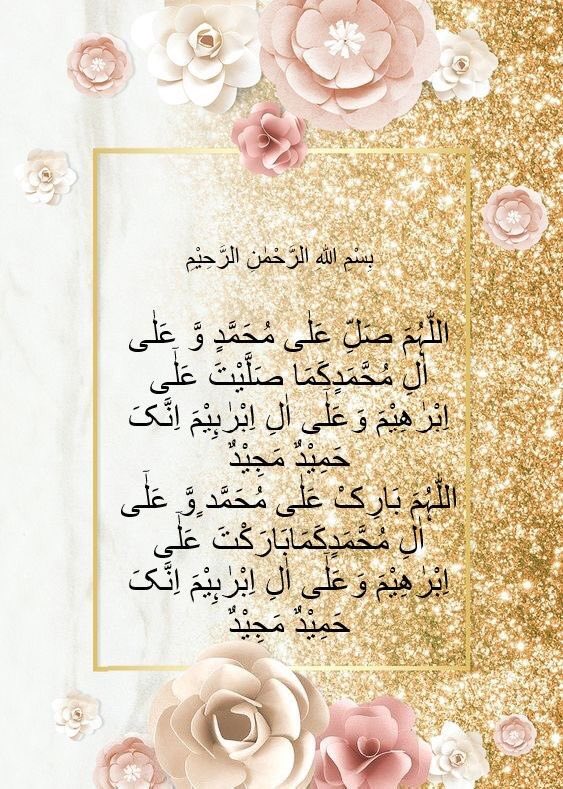 بِسْمِ اللهِ الرَّحْمٰنِ الرَّحِيْمِ
اللّٰہُمَّ صَلِّ عَلٰی مُحَمَّدٍ وَّ عَلٰٓی
اٰلِ مُحَّمَدٍکَمَا صَلَّیْتَ عَلٰٓی
اِبْرٰھِیْمَ وَعَلٰٓی اٰلِ اِبْرٰہِیْمَ اِنَّکَ
حَمِیْدٌ مَجِیْدٌ
اللّٰہُمَّ بَارِکْ عَلٰی مُحَمَّدٍ وَّ عَلٰٓی
اٰلِ مُحَّمَدٍکَمَابَارَکْتَ عَلٰٓی
اِبْرٰھِیْمَ وَعَلٰٓی اٰلِ اِبْرٰہِیْمَ اِنَّکَ
حَمِیْدٌ مَجِیْدٌ